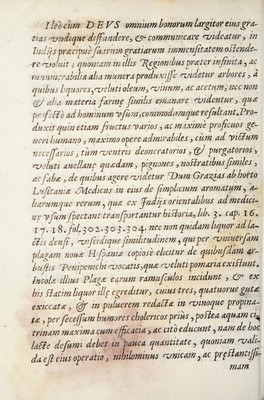 Ideò cùm DEVS omnium bonorum largitor eius gra-
tias vndique diffundere, & communicare videatur, in
Indijs præcipuè suarum gratiarum immensitatem ostende-
re voluit, quoniam in illis Regionibus præter infinita, ac
innumerabilia alia munera produxisse videtur arbores, à
quibus liquores, veluti oleum, vinum, ac acetum, nec non
& alia materia farinæ similis emanare videntur, quæ
profectò ad hominum vsum, commodumque resultant. Pro-
duxit quin etiam fructus varios, ac maximè proficuos ge-
neri humano, maximo opere admirabiles, cùm ad victum
necessarios, tùm ventris demoratorios, & purgatorios,
veluti auellanæ quædam, pignones, nostratibus similes,
ac fabæ, de quibus agere videtur Dum Grazias ab horto
Lusitanæ Medicus in eius de simplicium aromatum, a-
liarumque rerum, quæ ex Indijs orientalibus ad medici-
næ vsum spectant transportantur historia, lib. 3. cap. 16.
17. 18. fol. 302. 303. 304. nec non quidam liquor ad la-
ctis densi, viscidique similitudinem, qui per vniuersam
plagam nouæ Hispaniæ copiosè elicitur de quibusdam ar-
bustis Penipenichi vocatis, quæ veluti pomaria existunt.
Incolæ illius Plagæ earum ramusculos incidunt, & ex
his statim liquor ille egreditur, cuius tres, quatuorue guttæ
exiccatæ, & in puluerem redactæ in vinoque propina-
tæ, per secessum humores cholericos prius, postea aquam ci-
trinam maxima cum efficacia, ac citò educunt, nam de hoc
lacte desumi debet in pauca quantitate, quoniam vali-
da est eius operatio, nihilominus vnicam, ac præstantissi-
mam